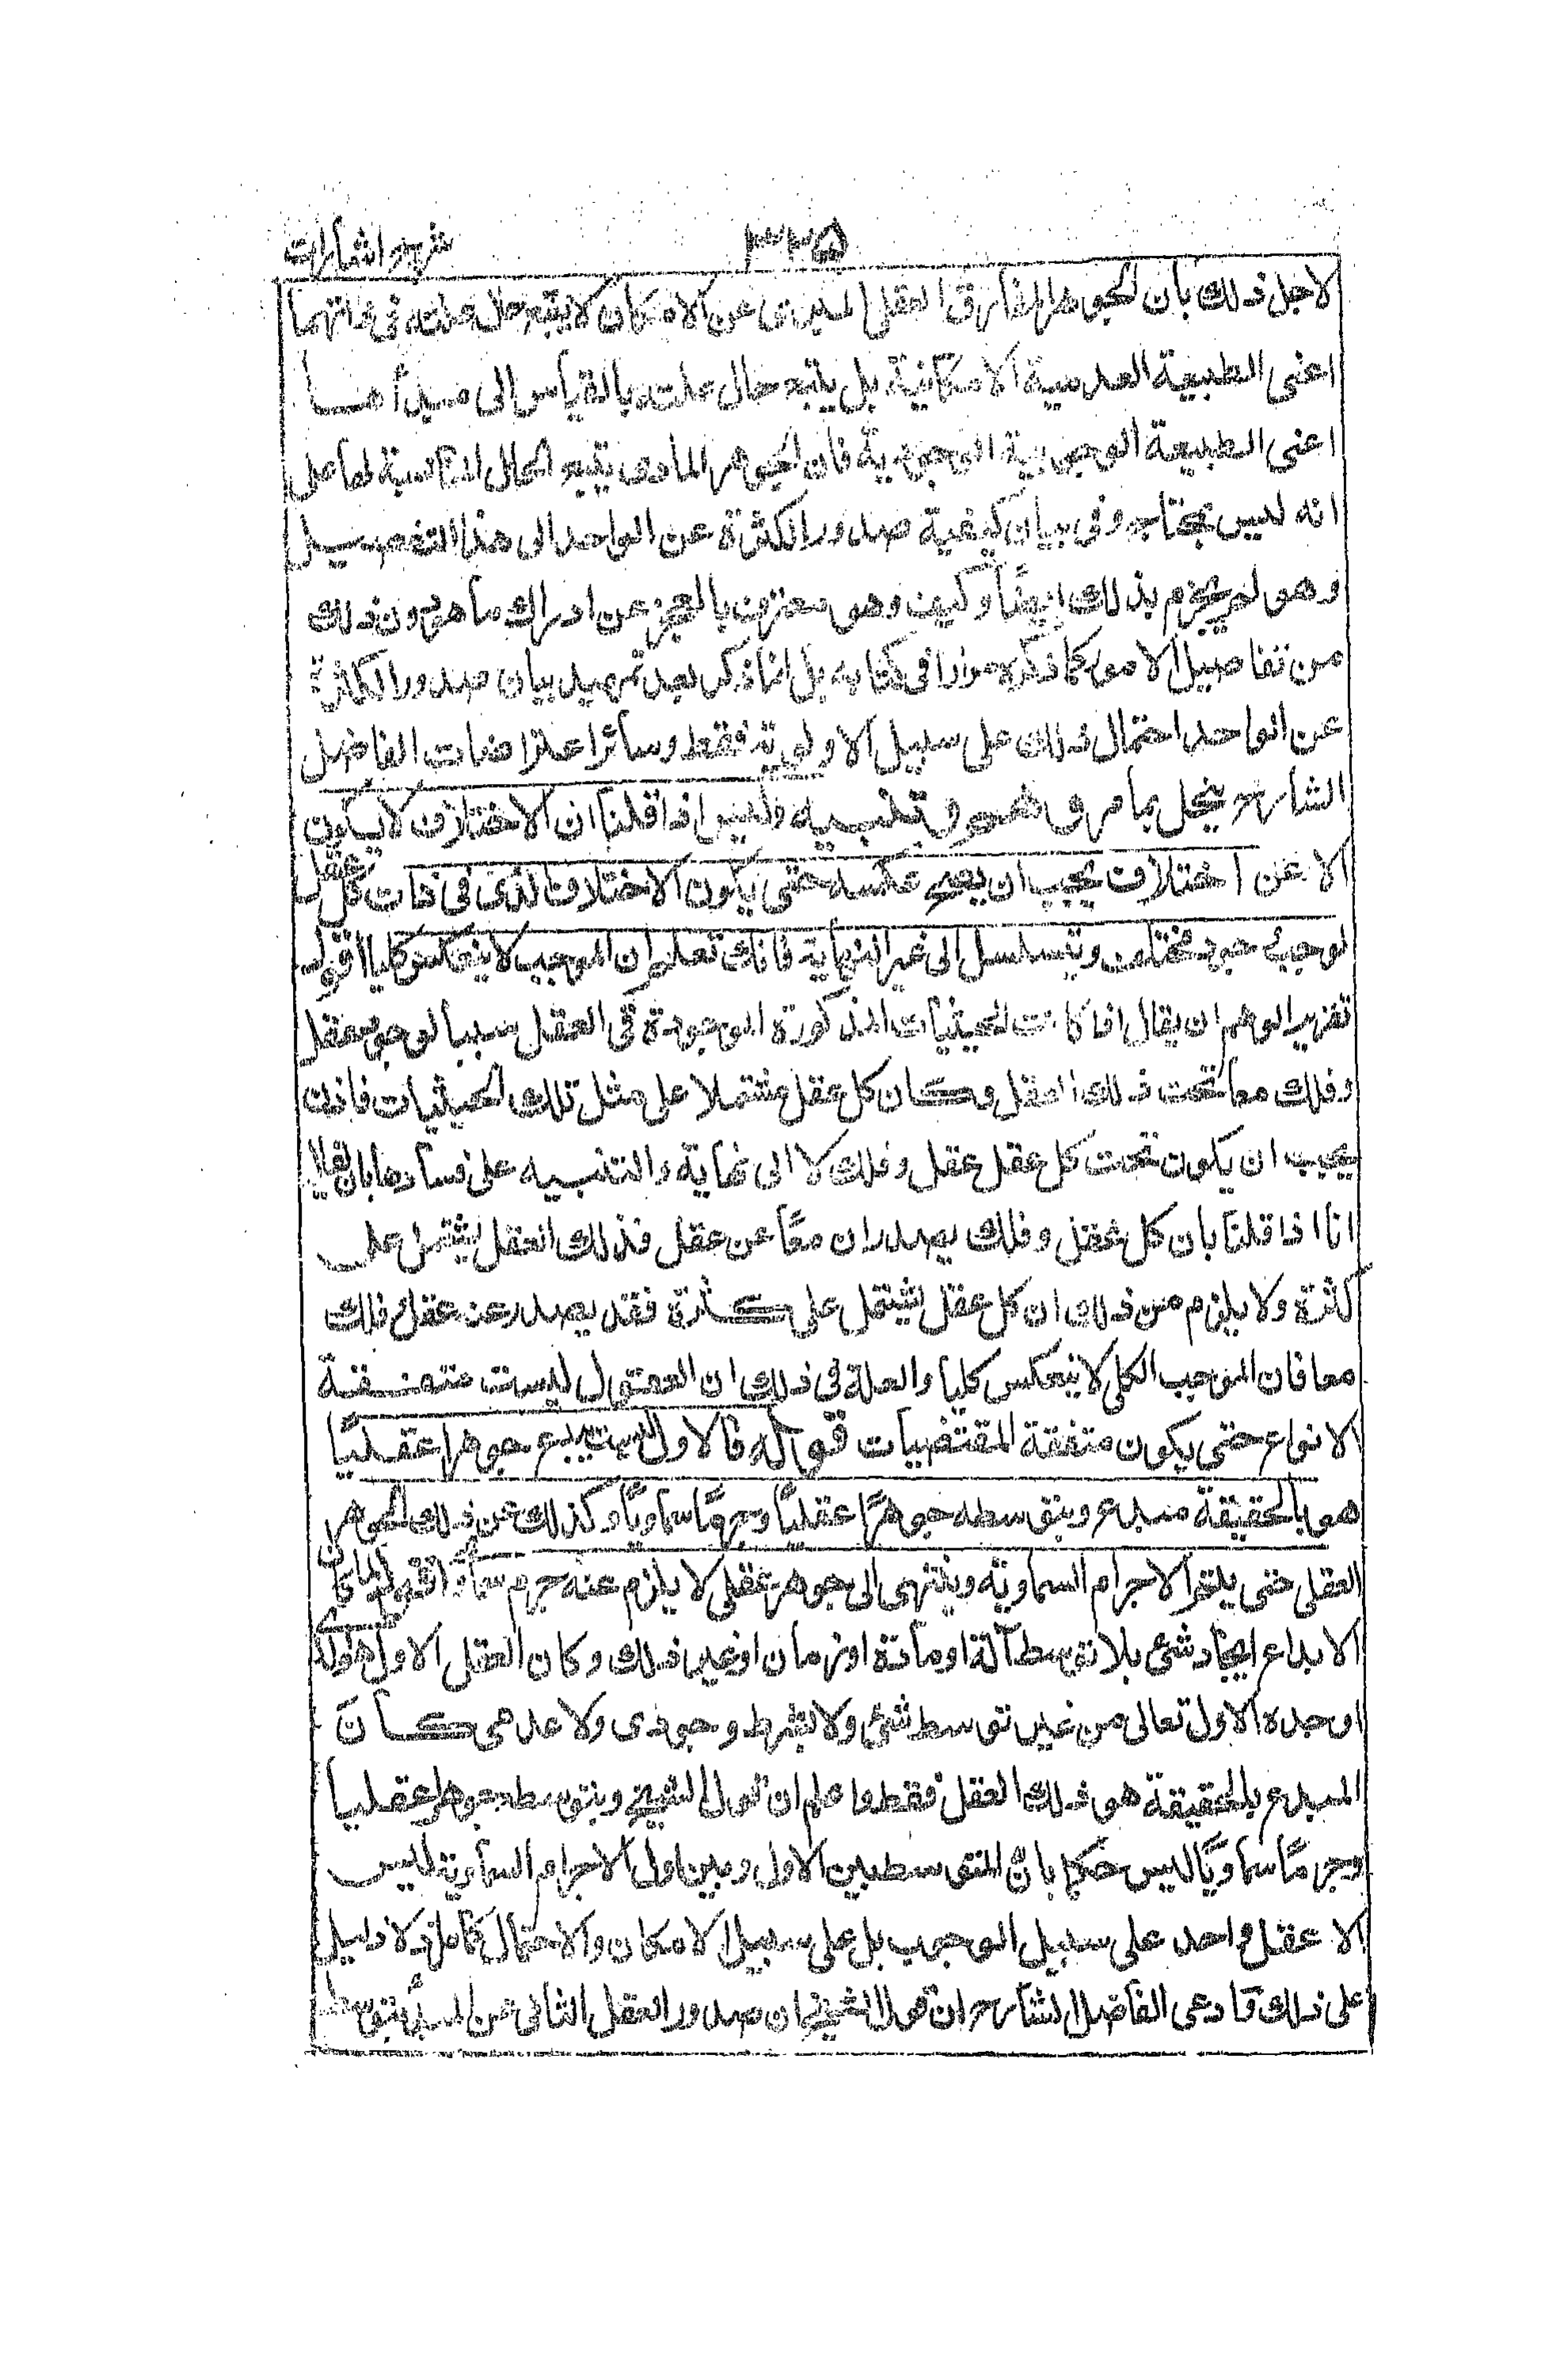 شرح اشارات
٣٣۵
لاجل ذلك بأن الجوهر المفارق العقلى البرىء عن الامكان لا يتبع حال علته فى ذاتهما
اعنى الطبيعة العدمية الامكانية بل يتبع حال علته بالقياس الى مبدأها
اعنى الطبيعة الوجوبية الوجودية فان الجوهر المادى يتبع الحال المناسبة لها على
انه ليس بمحتاج فى بيان كيفية صدور الكثرة عن الواحد الى هذا التفصيل
وهو لم يجزم بذلك ايضًا وكيف وهو معترف بالعجز عن ادراك ما هو دون ذلك
من تفاصيل الامور كما ذكره مرارا فى كتابه بل انما ذكر بعد تمهيد بيان صدور الكثرة
عن الواحد احتمال ذلك على سبيل الاولوية فقط وسائر اعتراضات الفاضل
الشارح ينحل بما مر وهم وتنبيه وليس اذا قلنا ان الاختلاف لا يكون
الا عن اختلاف يجب ان يصح عكسه حتى يكون الاختلاف الذى فى ذات كل عقل
يوجب وجود مختلف ويتسلسل الى غير النهاية فانك تعلم ان الموجب لا ينعكس كليا اقول
تقرير الوهم ان يقال اذا كانت الحيثيات المذكورة الموجودة فى العقل سببا لوجود عقل
وفلك معا تحت ذلك العقل وكان كل عقل مشتملا على مثل تلك الحيثيات فاذن
يجب ان يكون تحت كل عقل عقل وفلك لا الى نهاية والتنبيه على فسادها بان يقال
انا اذا قلنا بان كل عقل وفلك يصدران معًا عن عقل فذلك العقل يشتمل على
كثرة ولا يلزم من ذلك ان كل عقل يشتمل على كثرة فقد يصدر عنه عقل وفلك
معا فان الموجب الكلى لا ينعكس كليا والعلة فى ذلك ان العقول ليست متفقة
الانواع حتى يكون متفقة المقتضيات قوله فالاول يبدع جوهرا عقليًا
هو بالحقيقة مبدع وبتوسطه جوهرًا عقليًا وجرمًا سماويًا وكذلك عن ذلك الجوهر
العقلى حتى يتم الاجرام السماوية وينتهى الى جوهر عقلى لا يلزم عنه جرم سماوى اقول لما كان
الابداع ايجاد شئ بلا توسط آلة او مادة او زمان او غير ذلك وكان العقل الاول هو الذى
اوجده الاول تعالى من غير توسط شئ ولا بشرط وجودى ولا عدمى كان
المبدع بالحقيقة هو ذلك العقل فقط واعلم ان قول الشيخ وبتوسطه جوهرا عقليا
وجرمًا سماويًا ليس حكما بانّ المتوسط بين الاول وبين اول الاجرام السماوية ليس
الا عقل واحد على سبيل الوجوب بل على سبيل الامكان والاحتمال كما مر اذ لا دليل
على ذلك وادعى الفاضل الشارح ان قول الشيخ ان صدور العقل الثانى عن المبدأ بتوسط